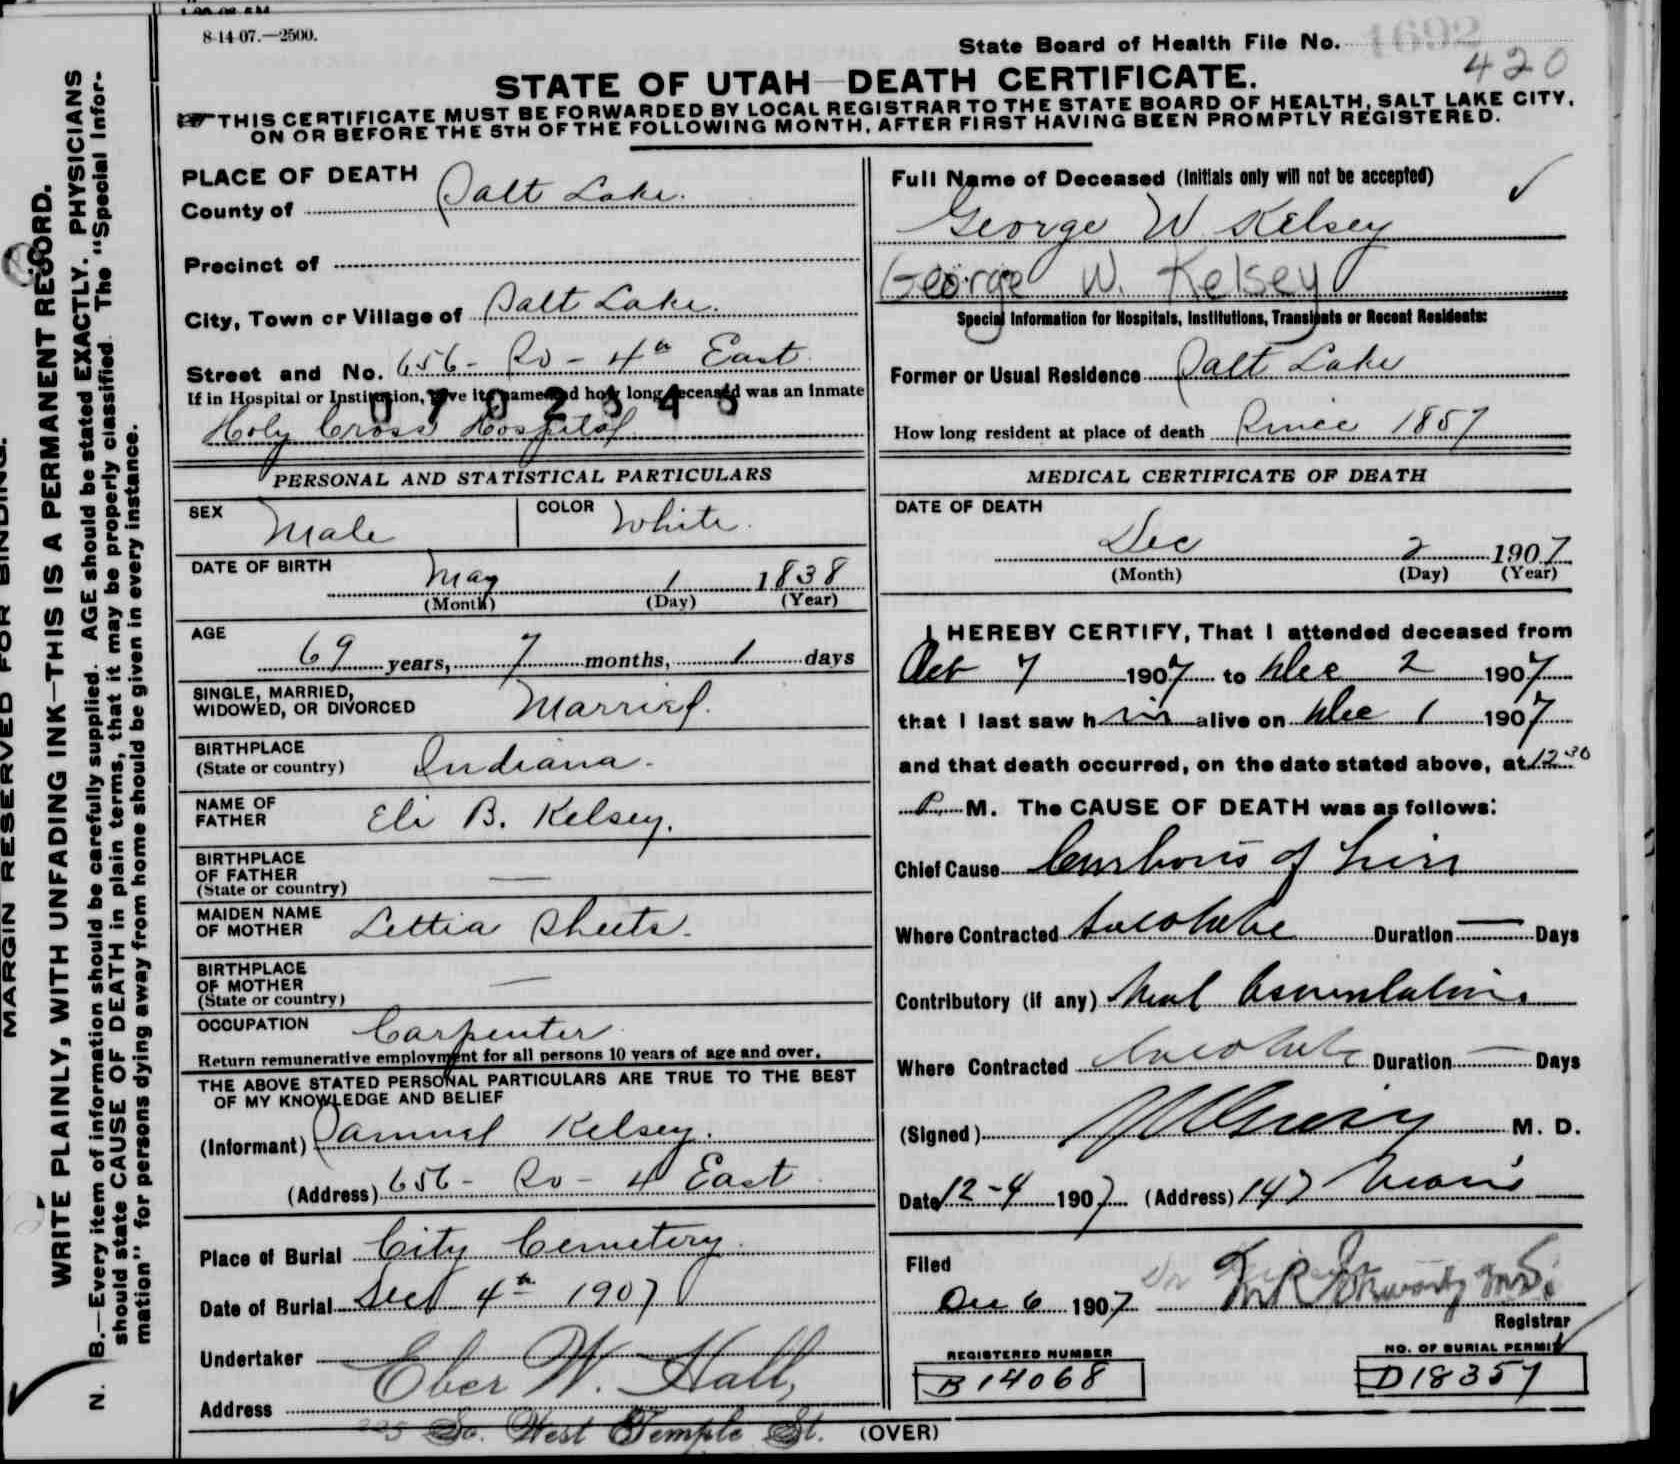 8-14-07.—2500.
State Board of Health File No.
1692
420
STATE OF UTAH—DEATH CERTIFICATE.
THIS CERTIFICATE MUST BE FORWARDED BY LOCAL REGISTRAR TO THE STATE BOARD OF HEALTH, SALT LAKE CITY,
ON OR BEFORE THE 5TH OF THE FOLLOWING MONTH, AFTER FIRST HAVING BEEN PROMPTLY REGISTERED.
MARGIN RESERVED FOR BINDING.
WRITE PLAINLY, WITH UNFADING INK—THIS IS A PERMANENT RECORD.
N. B.—Every item of information should be carefully supplied. AGE should be stated EXACTLY. PHYSICIANS
should state CAUSE OF DEATH in plain terms, that it may be properly classified. The "Special Infor-
mation" for persons dying away from home should be given in every instance.
PLACE OF DEATH
County of Salt Lake.
Precinct of
City, Town or Village of Salt Lake.
Street and No. 656 - So - 4th East
If in Hospital or Institution, give its name and how long deceased was an inmate
0702343
Holy Cross Hospital
PERSONAL AND STATISTICAL PARTICULARS
SEX Male COLOR White.
DATE OF BIRTH May 1 1838
(Month) (Day) (Year)
AGE
69 years, 7 months, 1 days
SINGLE, MARRIED,
WIDOWED, OR DIVORCED Married.
BIRTHPLACE
(State or country) Indiana.
NAME OF
FATHER Eli B. Kelsey.
BIRTHPLACE
OF FATHER —
(State or country)
MAIDEN NAME
OF MOTHER Lettia Sheets.
BIRTHPLACE
OF MOTHER —
(State or country)
OCCUPATION Carpenter
Return remunerative employment for all persons 10 years of age and over.
THE ABOVE STATED PERSONAL PARTICULARS ARE TRUE TO THE BEST
OF MY KNOWLEDGE AND BELIEF
(Informant) Samuel Kelsey.
(Address) 656 - So - 4 East
Place of Burial City Cemetery.
Date of Burial Dec 4th 1907
Undertaker Eber W. Hall,
Address
So. West Temple St.
(OVER)
Full Name of Deceased (Initials only will not be accepted)
George W Kelsey
George W. Kelsey
Special Information for Hospitals, Institutions, Transients or Recent Residents:
Former or Usual Residence Salt Lake
How long resident at place of death Since 1857
MEDICAL CERTIFICATE OF DEATH
DATE OF DEATH
Dec 2 1907
(Month) (Day) (Year)
I HEREBY CERTIFY, That I attended deceased from
Oct 7 1907 to Dec 2 1907
that I last saw him alive on Dec 1 1907
and that death occurred, on the date stated above, at 12 30
P M. The CAUSE OF DEATH was as follows:
Chief Cause Cirrhosis of Liver
Where Contracted Duration — Days
Contributory (if any)
Where Contracted Duration — Days
(Signed) M. D.
Date 12-4 1907 (Address) 147
Filed
Dec 6 1907
Registrar
REGISTERED NUMBER
B 14068
NO. OF BURIAL PERMIT
D18357